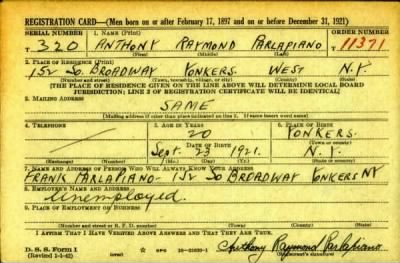 REGISTRATION CARD—(Men born on or after February 17, 1897 and on or before December 31, 1921)
SERIAL NUMBER 1. NAME (Print) ORDER NUMBER
T 320 ANTHONY RAYMOND PARLAPIANO 11371
(First) (Middle) (Last)
2. PLACE OF RESIDENCE (Print)
152 SO. BROADWAY YONKERS WEST N.Y.
(Number and street) (Town, township, village, or city) (County) (State)
[THE PLACE OF RESIDENCE GIVEN ON THE LINE ABOVE WILL DETERMINE LOCAL BOARD
JURISDICTION; LINE 2 OF REGISTRATION CERTIFICATE WILL BE IDENTICAL]
3. MAILING ADDRESS
SAME
[Mailing address if other than place indicated on line 2. If same insert word same]
4. TELEPHONE 5. AGE IN YEARS 6. PLACE OF BIRTH
20 YONKERS.
DATE OF BIRTH (Town or county)
Sept. 23 1921. N.Y.
(Exchange) (Number) (Mo.) (Day) (Yr.) (State or country)
7. NAME AND ADDRESS OF PERSON WHO WILL ALWAYS KNOW YOUR ADDRESS
FRANK PARLAPIANO - 152 SO BROADWAY YONKERS NY
8. EMPLOYER'S NAME AND ADDRESS
Unemployed.
9. PLACE OF EMPLOYMENT OR BUSINESS
(Number and street or R. F. D. number) (Town) (County) (State)
I AFFIRM THAT I HAVE VERIFIED ABOVE ANSWERS AND THAT THEY ARE TRUE.
D. S. S. Form 1
(Revised 1-1-42) (over) GPO Anthony Raymond Parlapiano